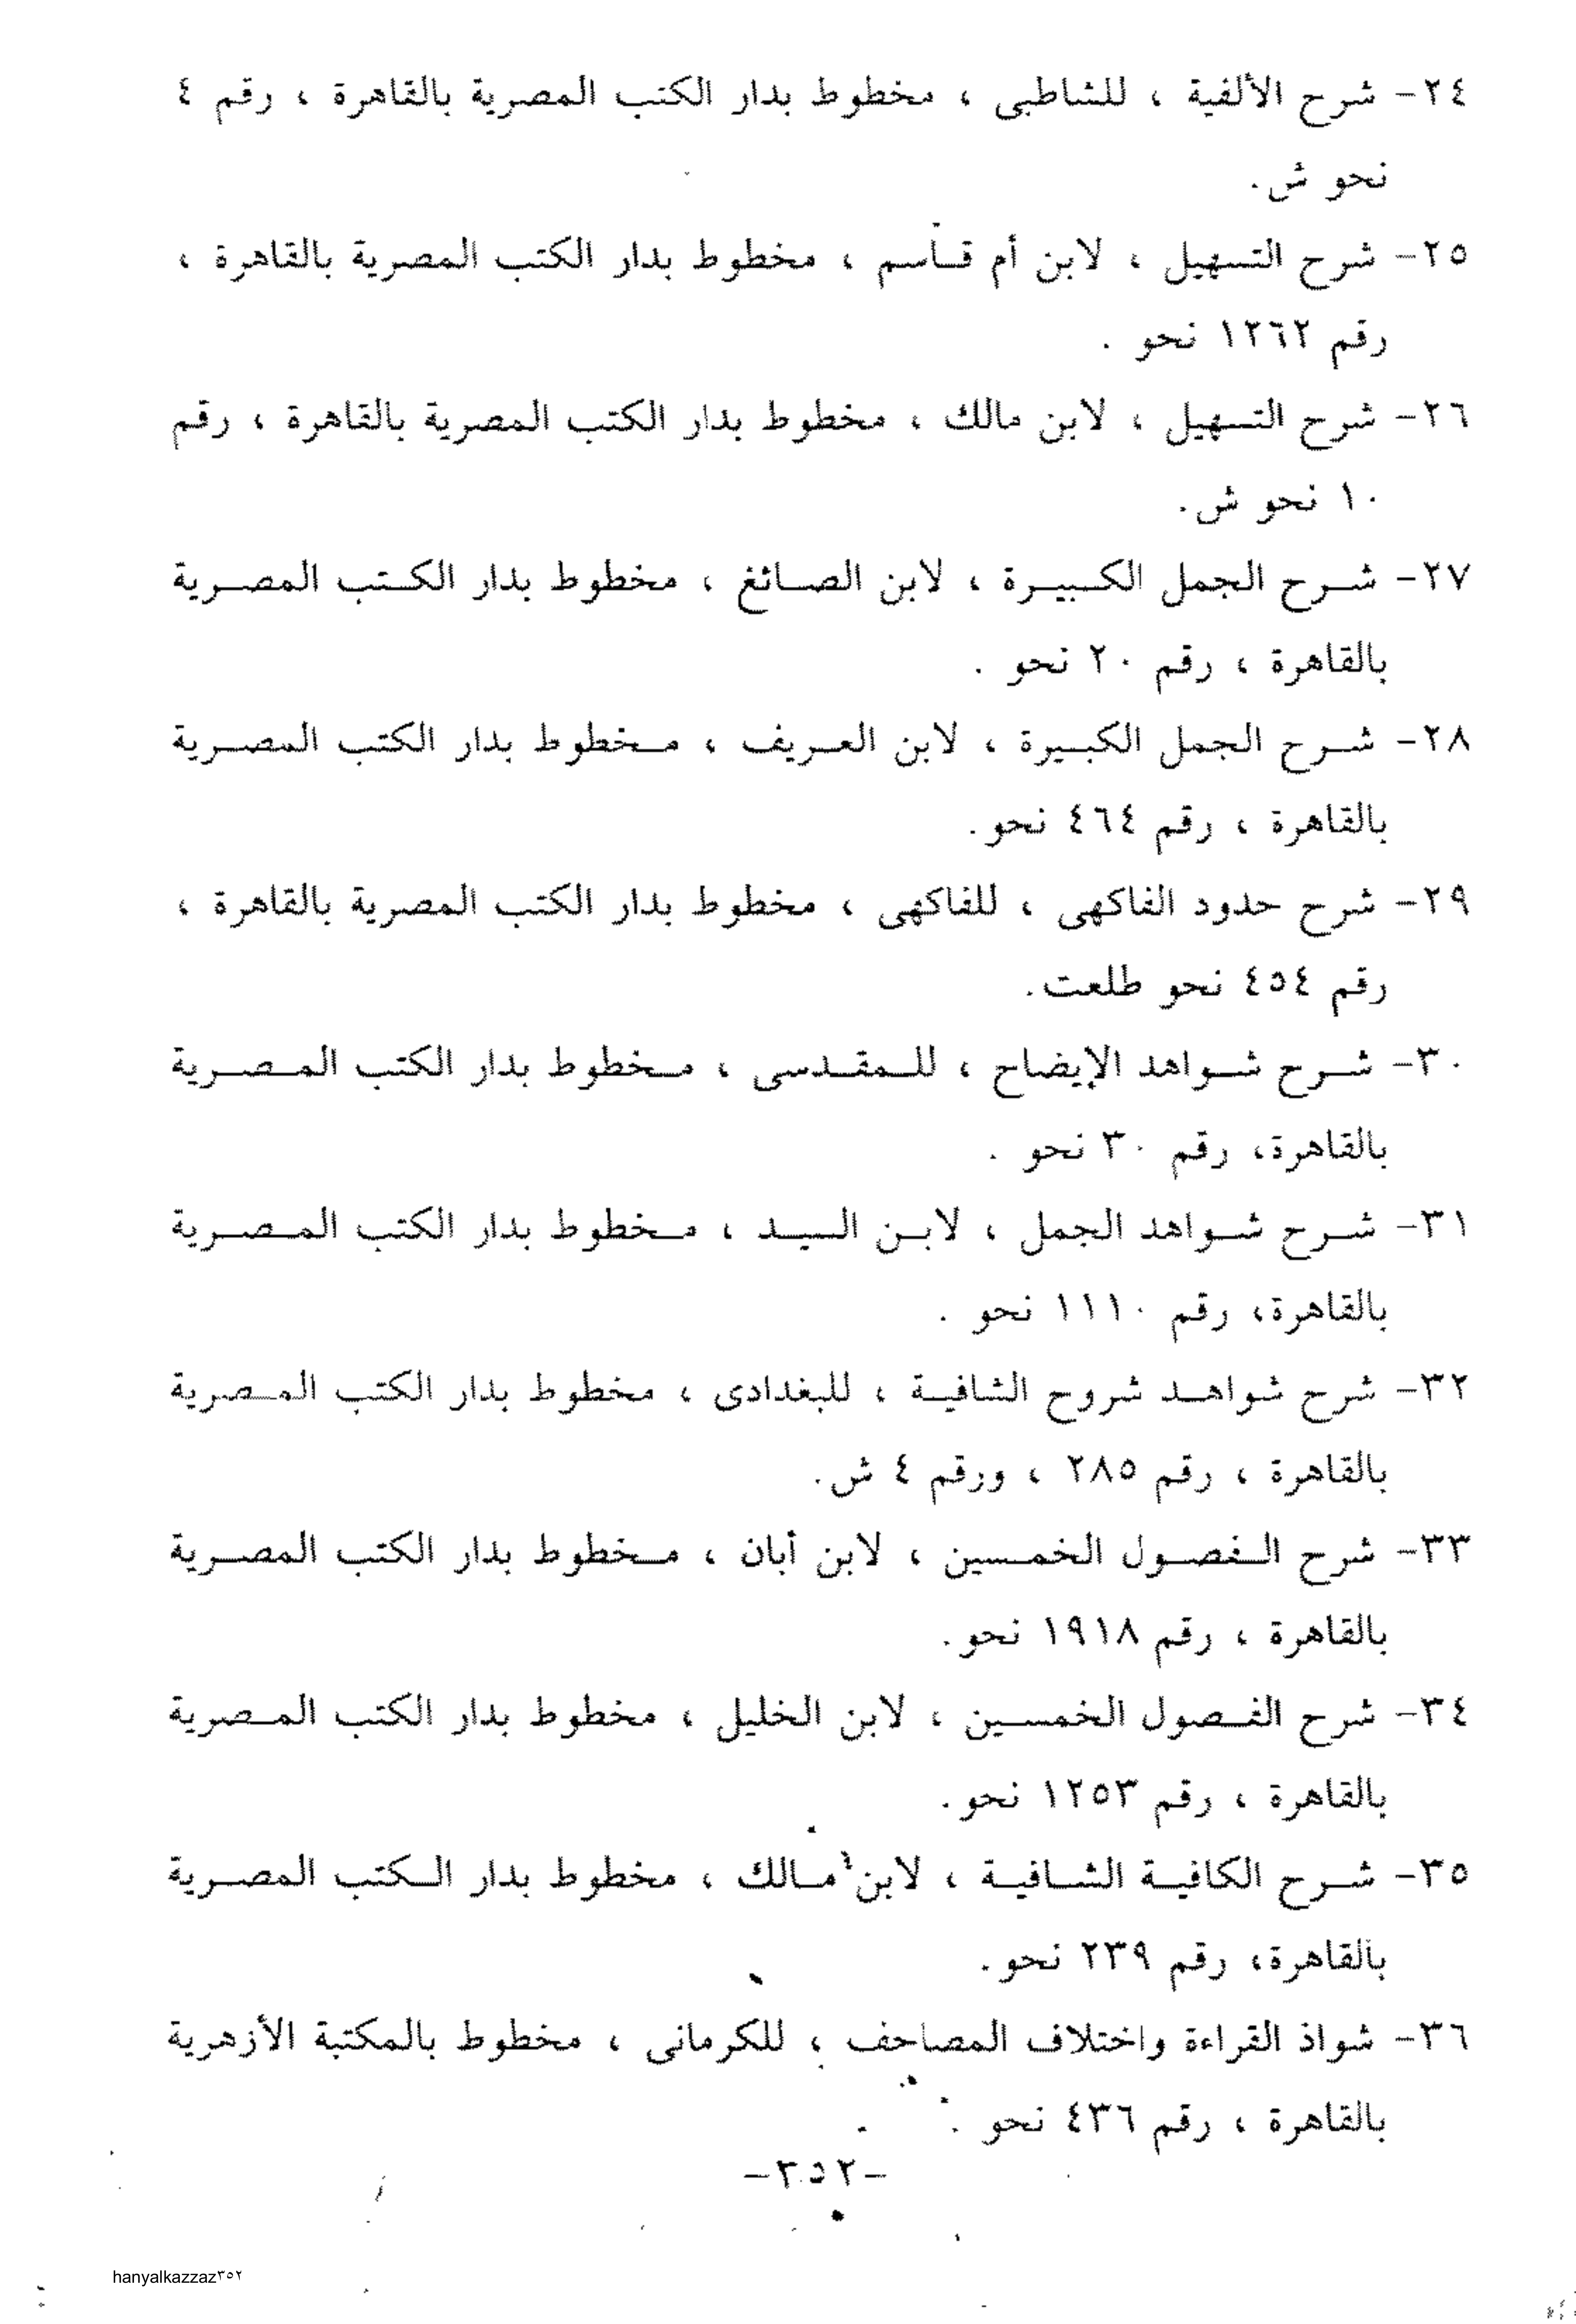 ٢٤- شرح الألفية ، للشاطبى ، مخطوط بدار الكتب المصرية بالقاهرة ، رقم ٤
نحو ش.
٢٥- شرح التسهيل ، لابن أم قاسم ، مخطوط بدار الكتب المصرية بالقاهرة ،
رقم ١٢٦٢ نحو .
٢٦- شرح التسهيل ، لابن مالك ، مخطوط بدار الكتب المصرية بالقاهرة ، رقم
١٠ نحو ش.
٢٧- شرح الجمل الكبيرة ، لابن الصائغ ، مخطوط بدار الكتب المصرية
بالقاهرة ، رقم ٢٠ نحو .
٢٨- شرح الجمل الكبيرة ، لابن العريف ، مخطوط بدار الكتب المصرية
بالقاهرة ، رقم ٤٦٤ نحو.
٢٩- شرح حدود الفاكهى ، للفاكهى ، مخطوط بدار الكتب المصرية بالقاهرة ،
رقم ٤٥٤ نحو طلعت.
٣٠- شرح شواهد الإيضاح ، للمقدسى ، مخطوط بدار الكتب المصرية
بالقاهرة، رقم ٣٠ نحو .
٣١- شرح شواهد الجمل ، لابن السيد ، مخطوط بدار الكتب المصرية
بالقاهرة، رقم ١١١٠ نحو .
٣٢- شرح شواهد شروح الشافية ، للبغدادى ، مخطوط بدار الكتب المصرية
بالقاهرة ، رقم ٢٨٥ ، ورقم ٤ ش.
٣٣- شرح الفصول الخمسين ، لابن أبان ، مخطوط بدار الكتب المصرية
بالقاهرة ، رقم ١٩١٨ نحو.
٣٤- شرح الفصول الخمسين ، لابن الخليل ، مخطوط بدار الكتب المصرية
بالقاهرة ، رقم ١٢٥٣ نحو.
٣٥- شرح الكافية الشافية ، لابن مالك ، مخطوط بدار الكتب المصرية
بالقاهرة، رقم ٢٣٩ نحو.
٣٦- شواذ القراءة واختلاف المصاحف ، للكرمانى ، مخطوط بالمكتبة الأزهرية
بالقاهرة ، رقم ٤٣٦ نحو .
-٣٥٢-
hanyalkazzaz٣٥٢